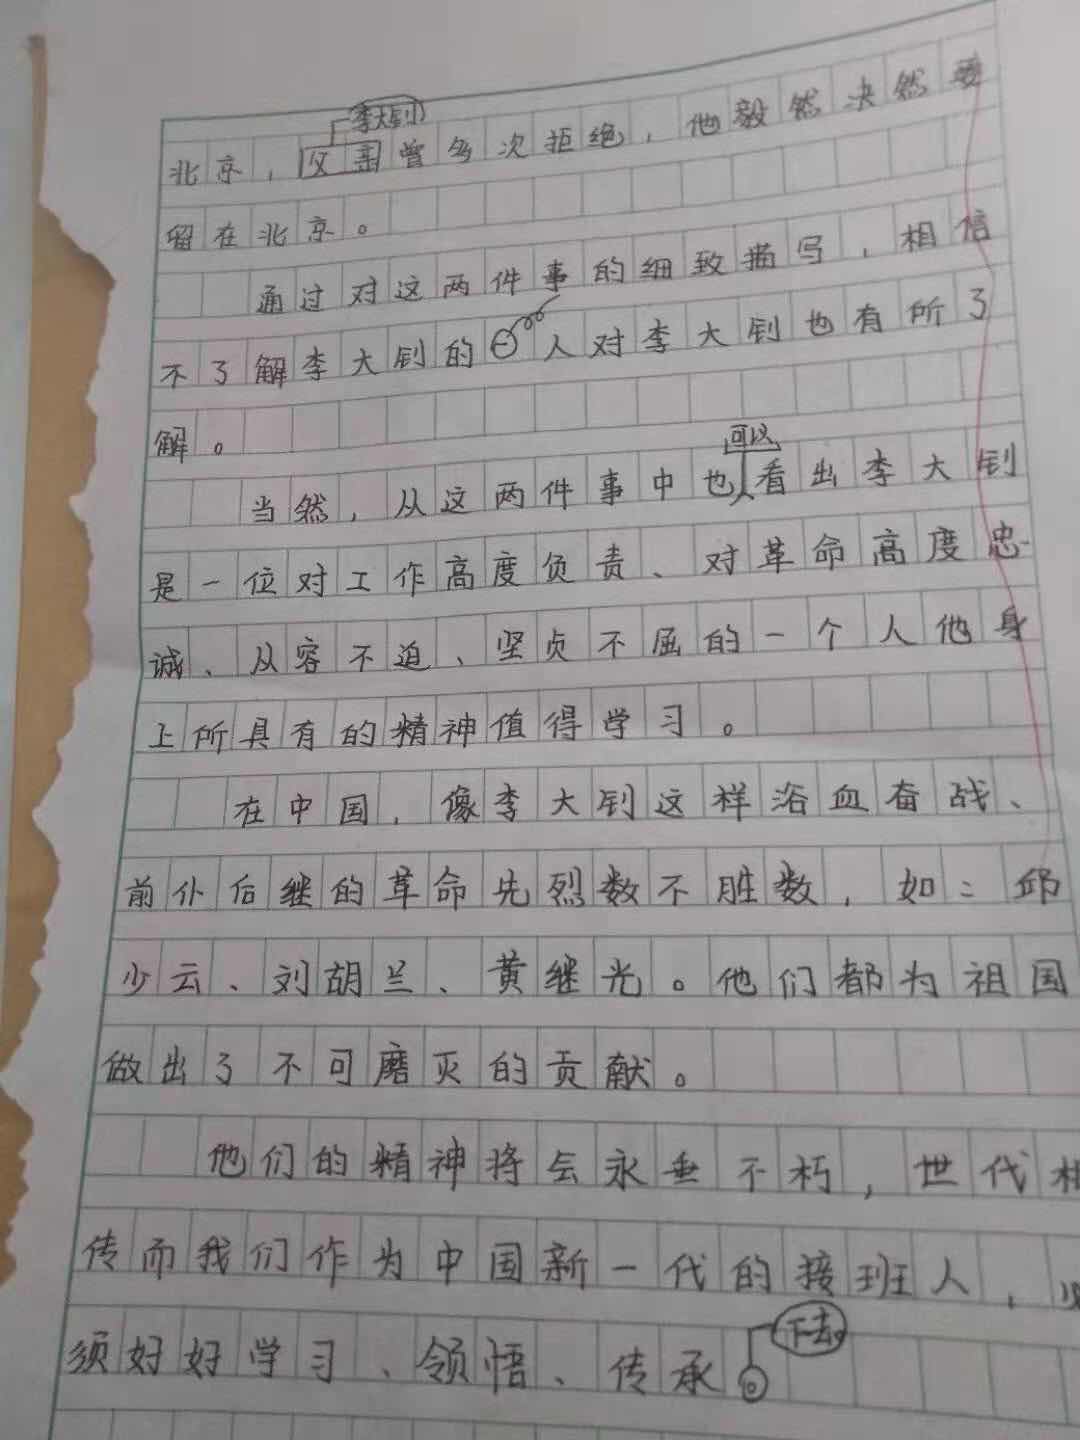 李大钊
北京，父亲曾多次拒绝，他毅然决然要
留在北京。
通过对这两件事的细致描写，相信
不了解李大钊的人对李大钊也有所了
解。
可以
当然，从这两件事中也看出李大钊
是一位对工作高度负责、对革命高度忠
诚、从容不迫、坚贞不屈的一个人他身
上所具有的精神值得学习。
在中国，像李大钊这样浴血奋战、
前仆后继的革命先烈数不胜数，如：邱
少云、刘胡兰、黄继光。他们都为祖国
做出了不可磨灭的贡献。
他们的精神将会永垂不朽，世代相
传而我们作为中国新一代的接班人，必
须好好学习、领悟、传承。
下去